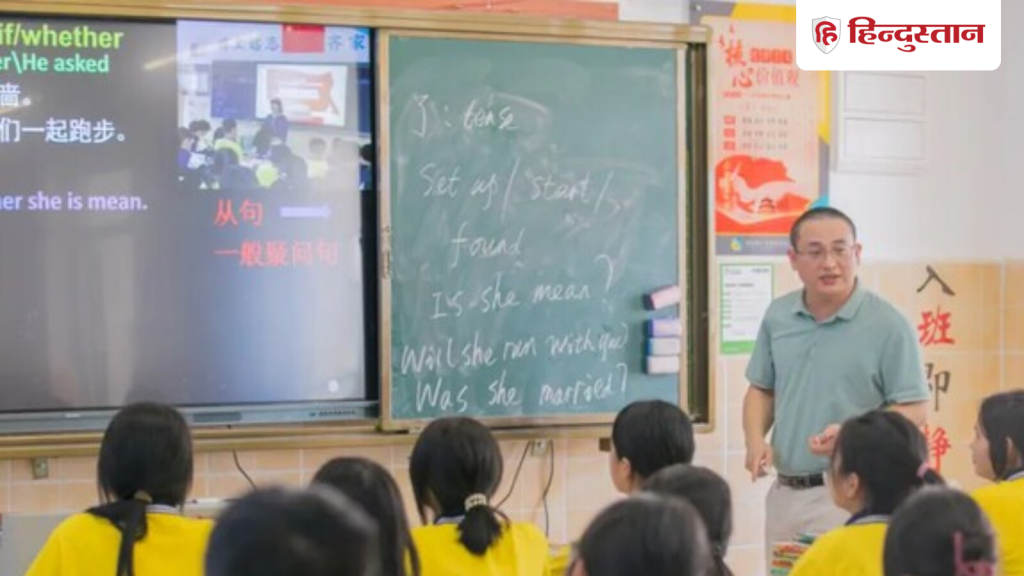 हि हिन्दुस्तान
if/whether
er\He asked
啬。
们一起跑步。
her she is mean.
从句
一般疑问句
齐家
: tense
Set up / start /
found
Is she mean?
Will she run with you?
Was she married?
核心价值观
入班即静